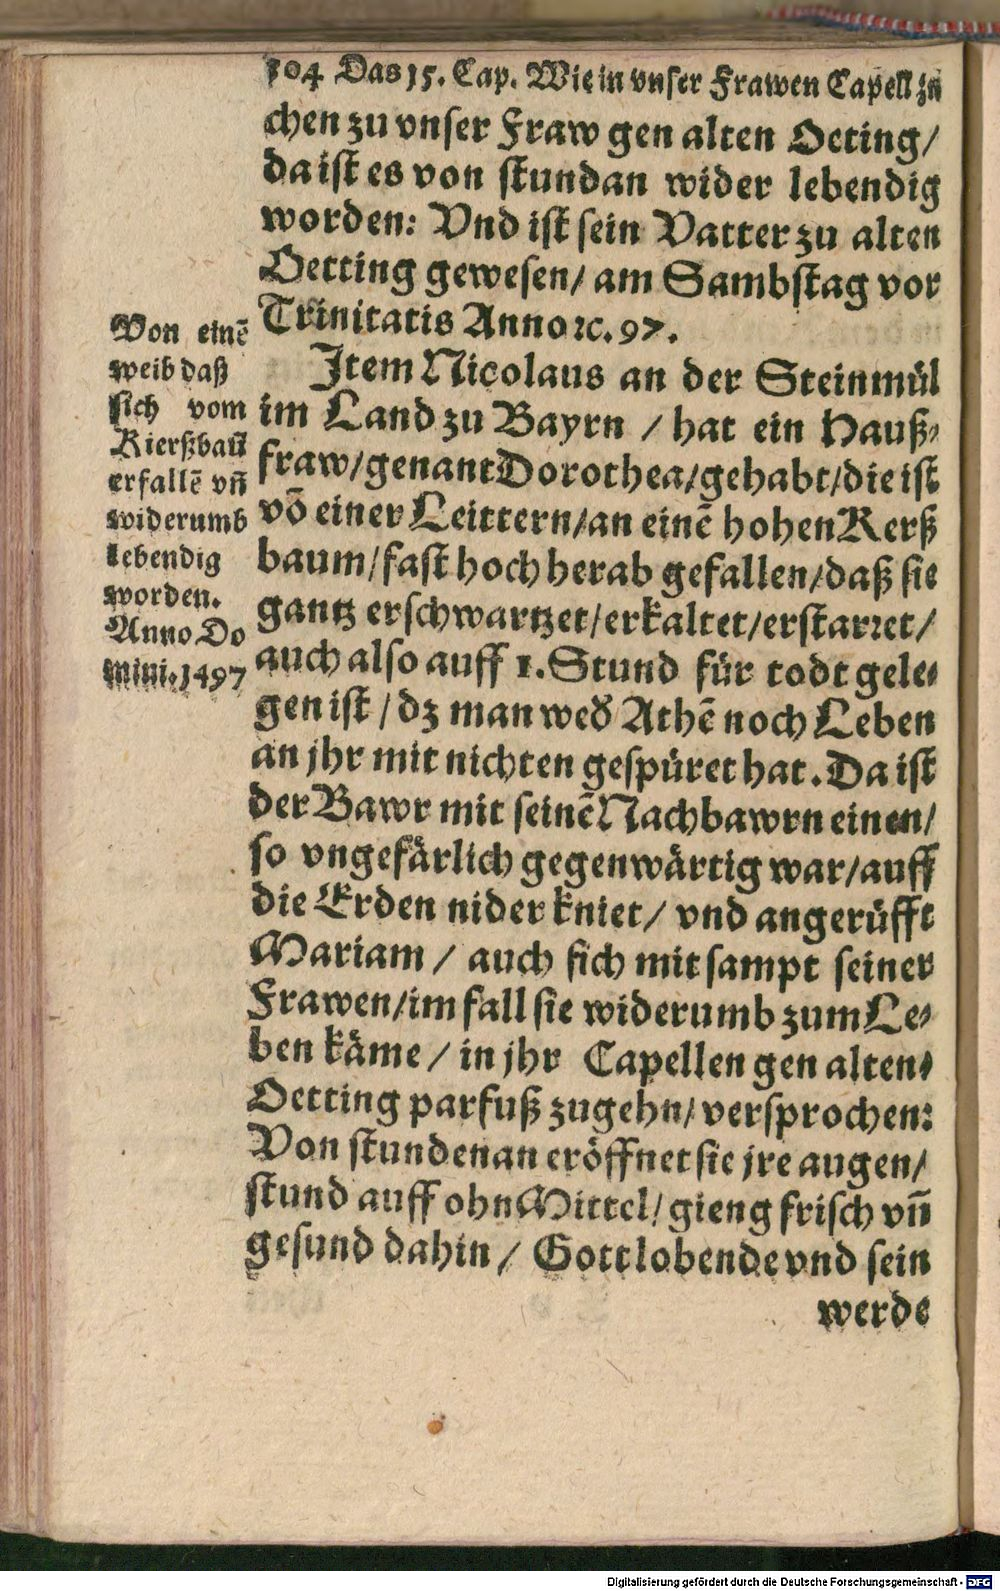 104 Das 15. Cap. Wie in vnser Frawen Capell zu
chen zu vnser Fraw gen alten Oeting/
da ist es von stundan wider lebendig
worden: Vnd ist sein Vatter zu alten
Oetting gewesen/ am Sambstag vor
Trinitatis Anno ꝛc. 97.
Von einē
weib daß
sich vom
Kierßbaū
erfallē vn̄
widerumb
lebendig
worden.
Anno Do
mini. 1497
Jtem Nicolaus an der Steinmül
im Land zu Bayrn / hat ein Hauß⸗
fraw/genant Dorothea/gehabt/die ist
vō einer Leittern/an einē hohen Kerß
baum/fast hoch herab gefallen/daß sie
gantz erschwartzet/erkaltet/erstarꝛet/
auch also auff 1. Stund für todt gele⸗
gen ist / dz man wed' Athē noch Leben
an jhr mit nichten gespüret hat. Da ist
der Bawr mit seinē Nachbawrn einen/
so vngefärlich gegenwärtig war/auff
die Erden nider kniet/ vnd angerüfft
Mariam / auch sich mit sampt seiner
Frawen/im fall sie widerumb zum Le⸗
ben käme / in jhr Capellen gen alten⸗
Oetting parfuß zugehn/ versprochen:
Von stundenan eröffnet sie jre augen/
stund auff ohn Mittel/ gieng frisch vn̄
gesund dahin / Gott lobende vnd sein
werde
Digitalisierung gefördert durch die Deutsche Forschungsgemeinschaft - DFG